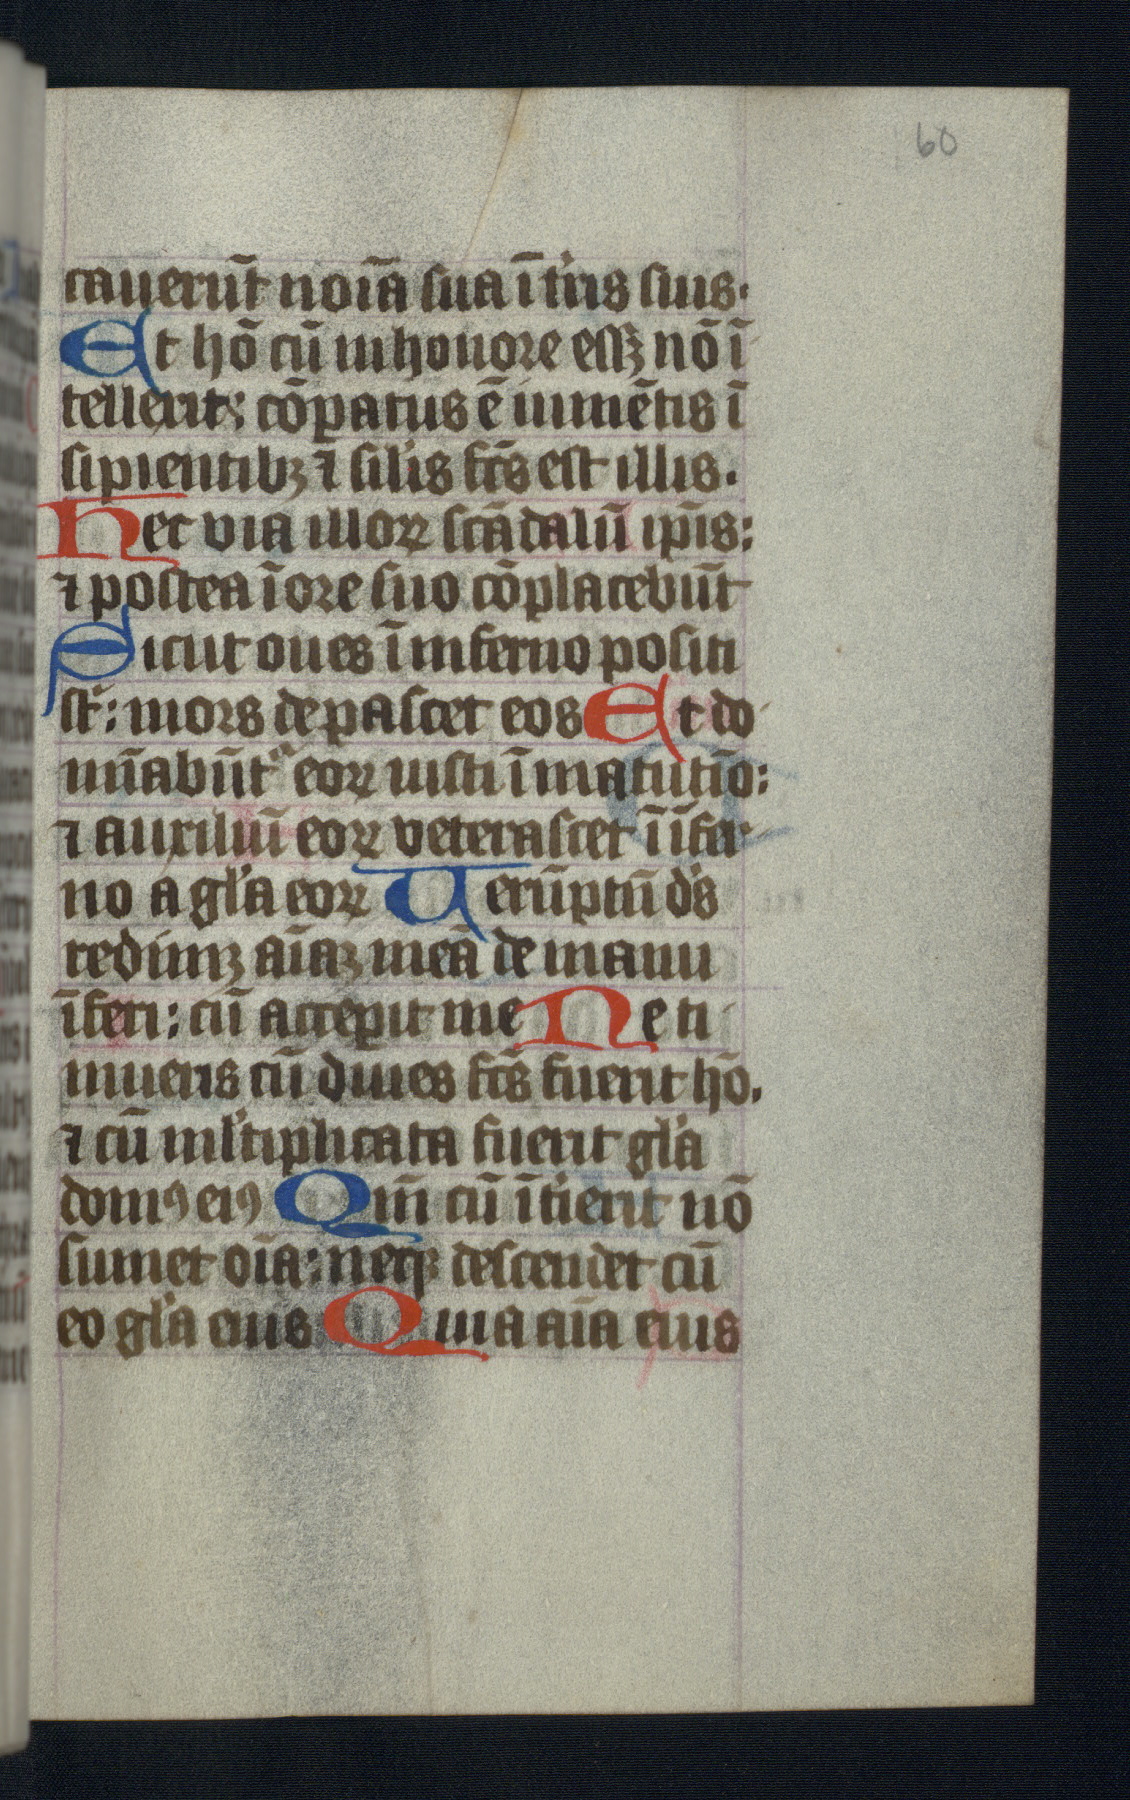 60
cauerūt noīa sua ī t'ris suis.
Et hō cū in honore essꝫ nō ī
tellexit: cōparatus ē iumētis ī
sipientibꝫ ⁊ sil'is fc̄s est illis.
Hec via illoꝝ scādalū ip̄is:
⁊ postea ī ore suo cōplacebūt
Sicut oues ī inferno positi
st̄: mors depascet eos Et do
mīabūtᵃ eoꝝ iusti ī matutīo:
⁊ auxiliū eoꝝ veterascet ī īfer
no a gl'a eoꝝ Verūptū d's
redimꝫ aīaꝫ meā de manu
īferi: cū acceperit me Ne ti
mueris cū diues fc̄s fuerit hō.
⁊ cū ml'tiplicata fuerit gl'a
domꝰ eiꝰ Qm̄ cū īt'ierit nō
sumet oīa: neqꝫ descendet cū
eo gl'a eius Quia aīa eius